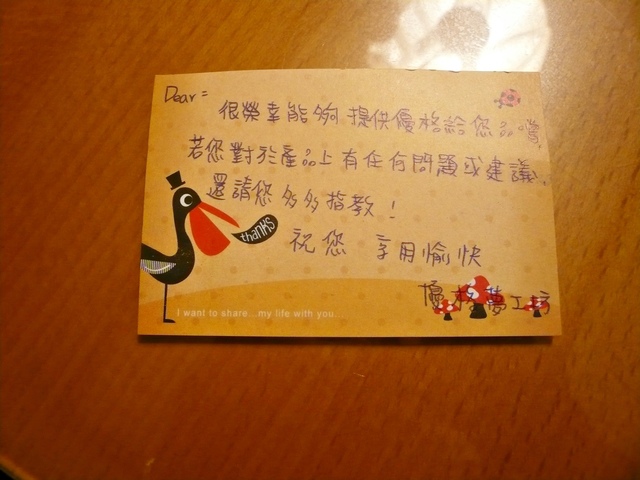 Dear=
很榮幸能夠提供優格給您品嚐,
若您對於產品上有任何問題或建議,
還請您多多指教!
thanks
祝您 享用愉快
優格夢工坊
I want to share...my life with you...